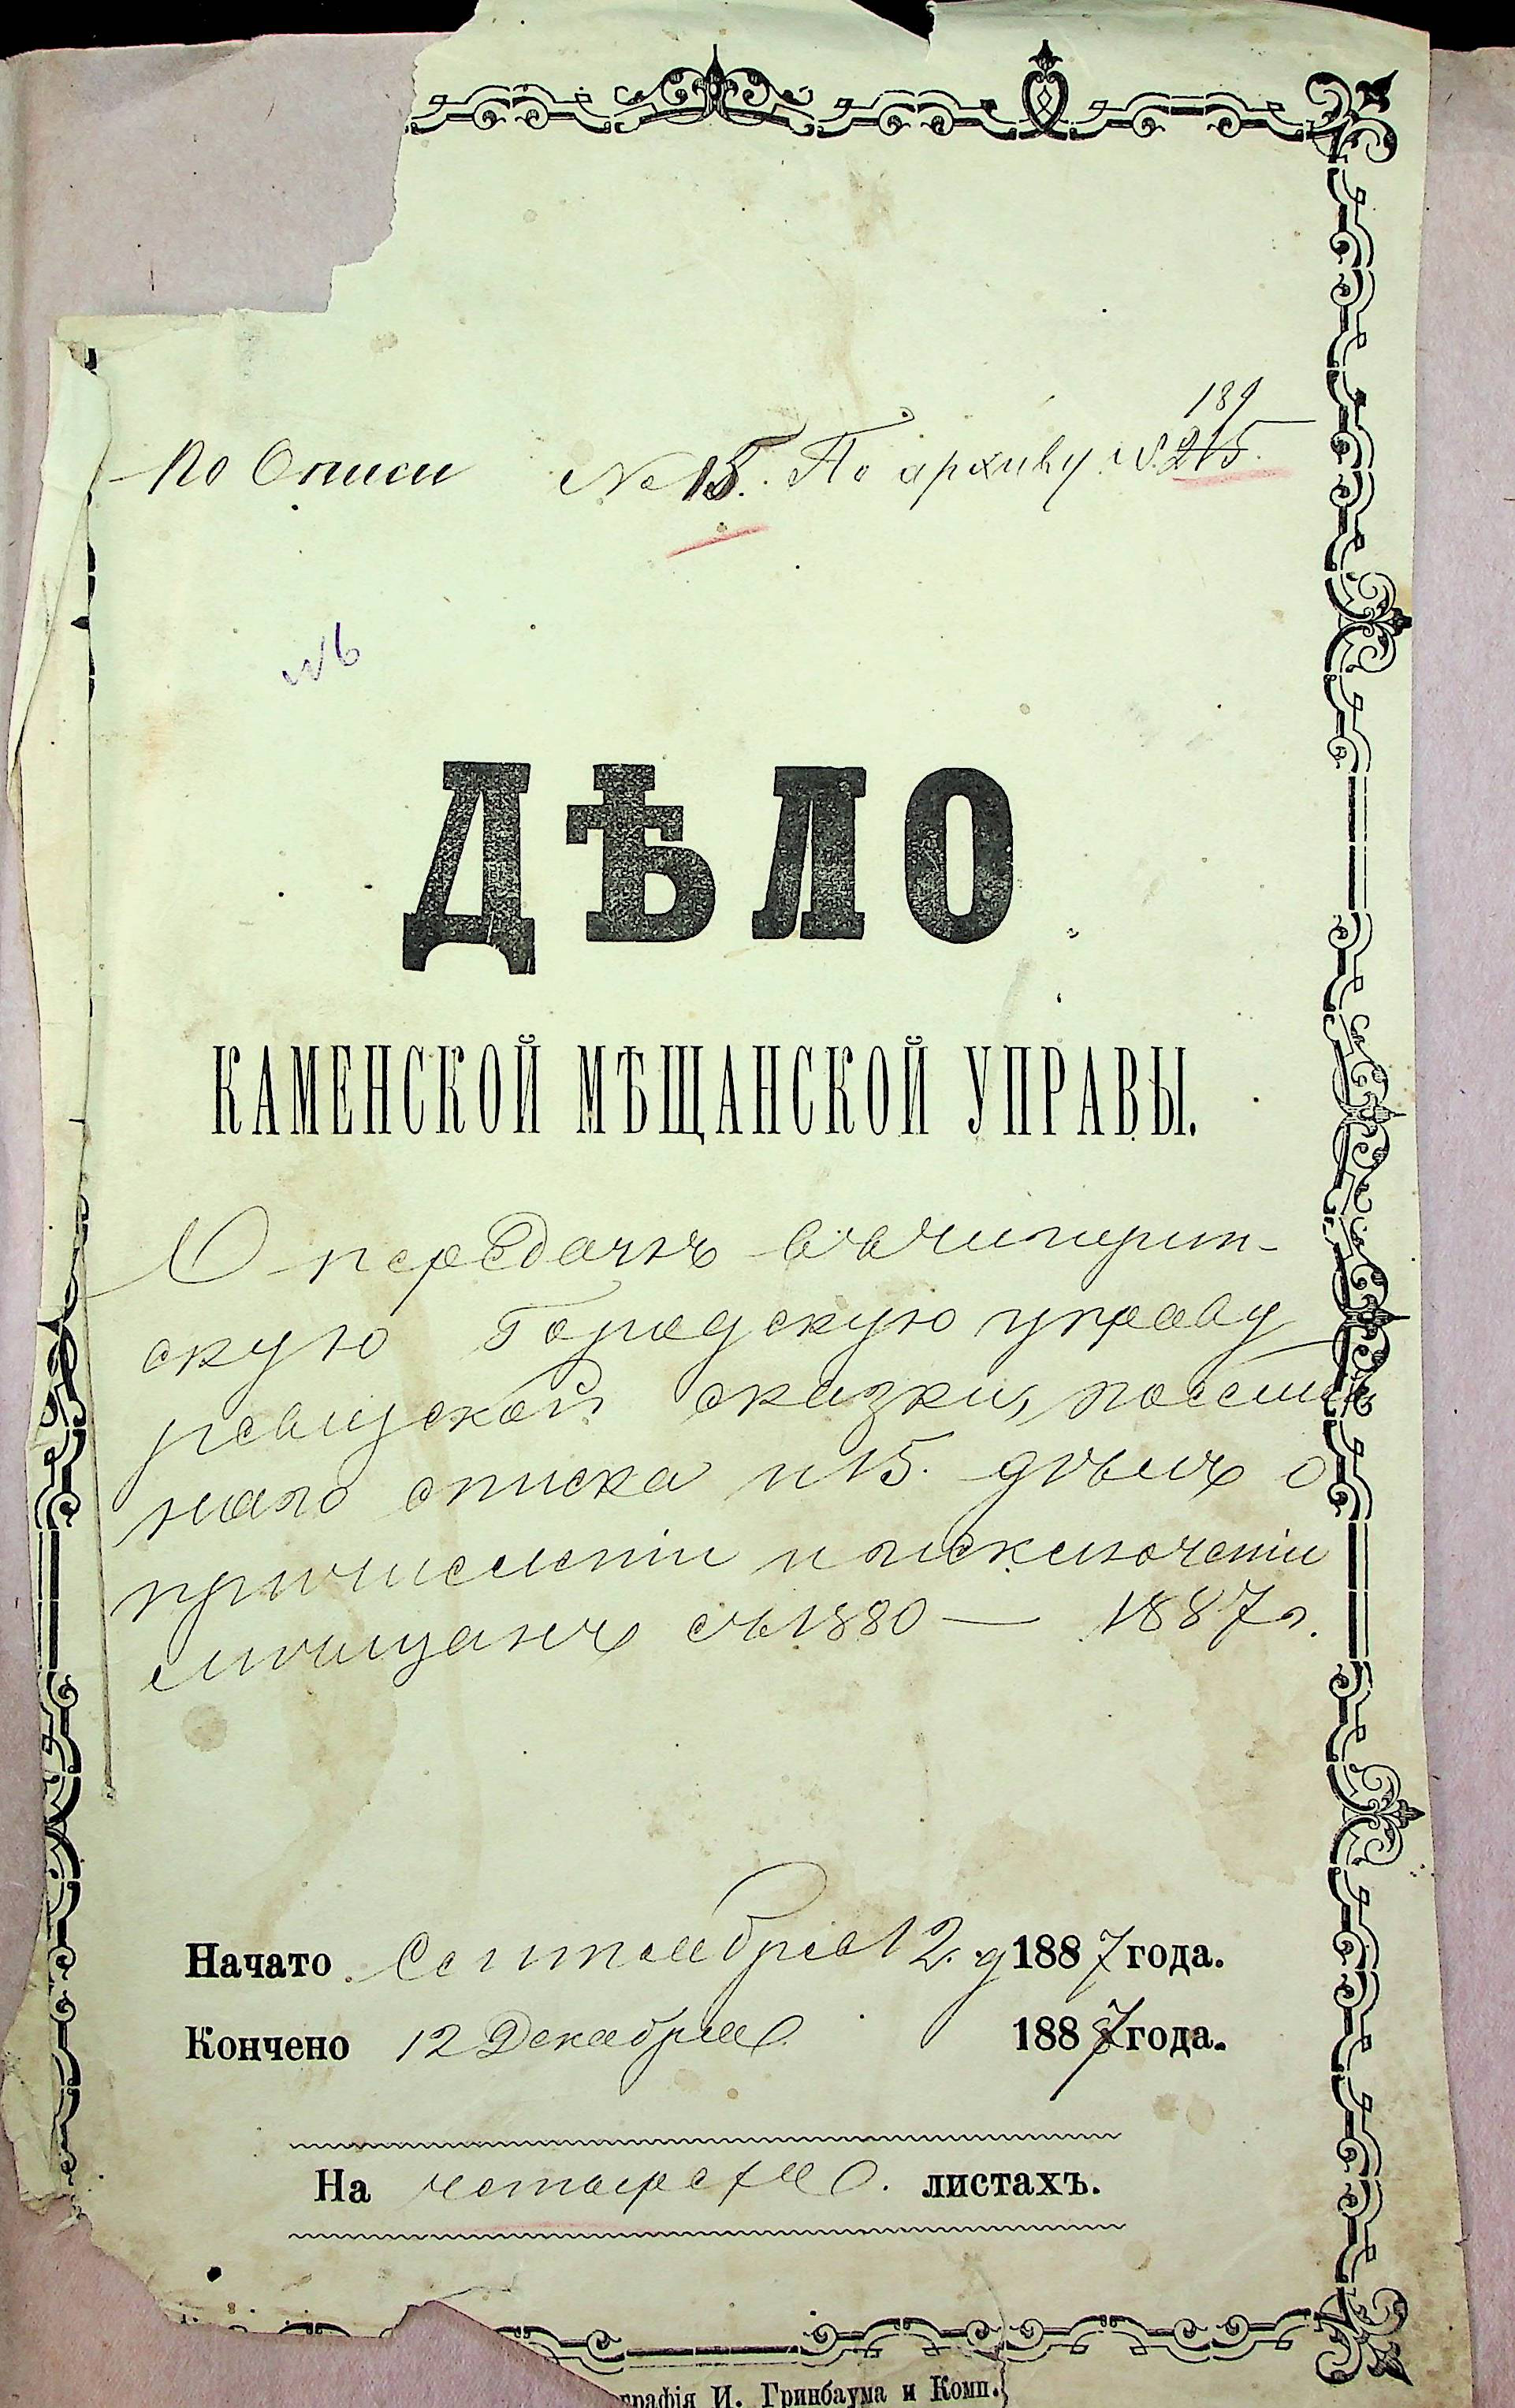 189
По Описи № 15. По архиву №. 215.
№6
ДѢЛО
КАМЕНСКОЙ МѢЩАНСКОЙ УПРАВЫ.
О передачѣ въ Чигирин-
скую Городскую управу
ревизской сказки, посемей
наго списка и 15. дѣлъ о
причисленіи и исключеніи
мѣщанъ съ 1880 — 1887 г.
Начато Сентября 12. д 1887 года.
Кончено 12 Декабря 1887 года.
На четырехъ. листахъ.
графія И. Гринбаума и Комп.